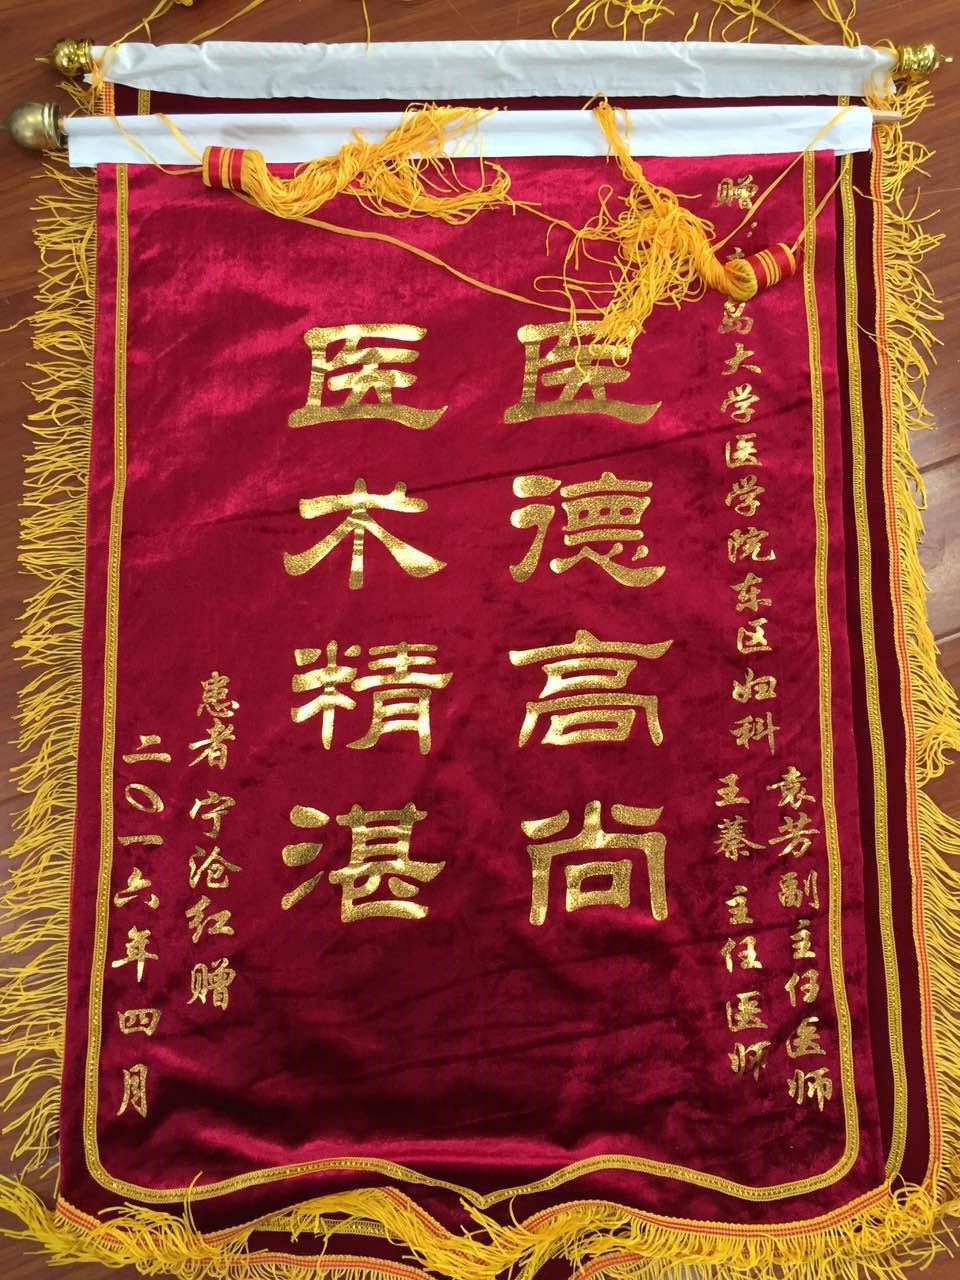 赠:青岛大学医学院东区妇科
袁芳副主任医师
王蓁主任医师
医德高尚
医术精湛
患者宁沧红赠
二〇一六年四月